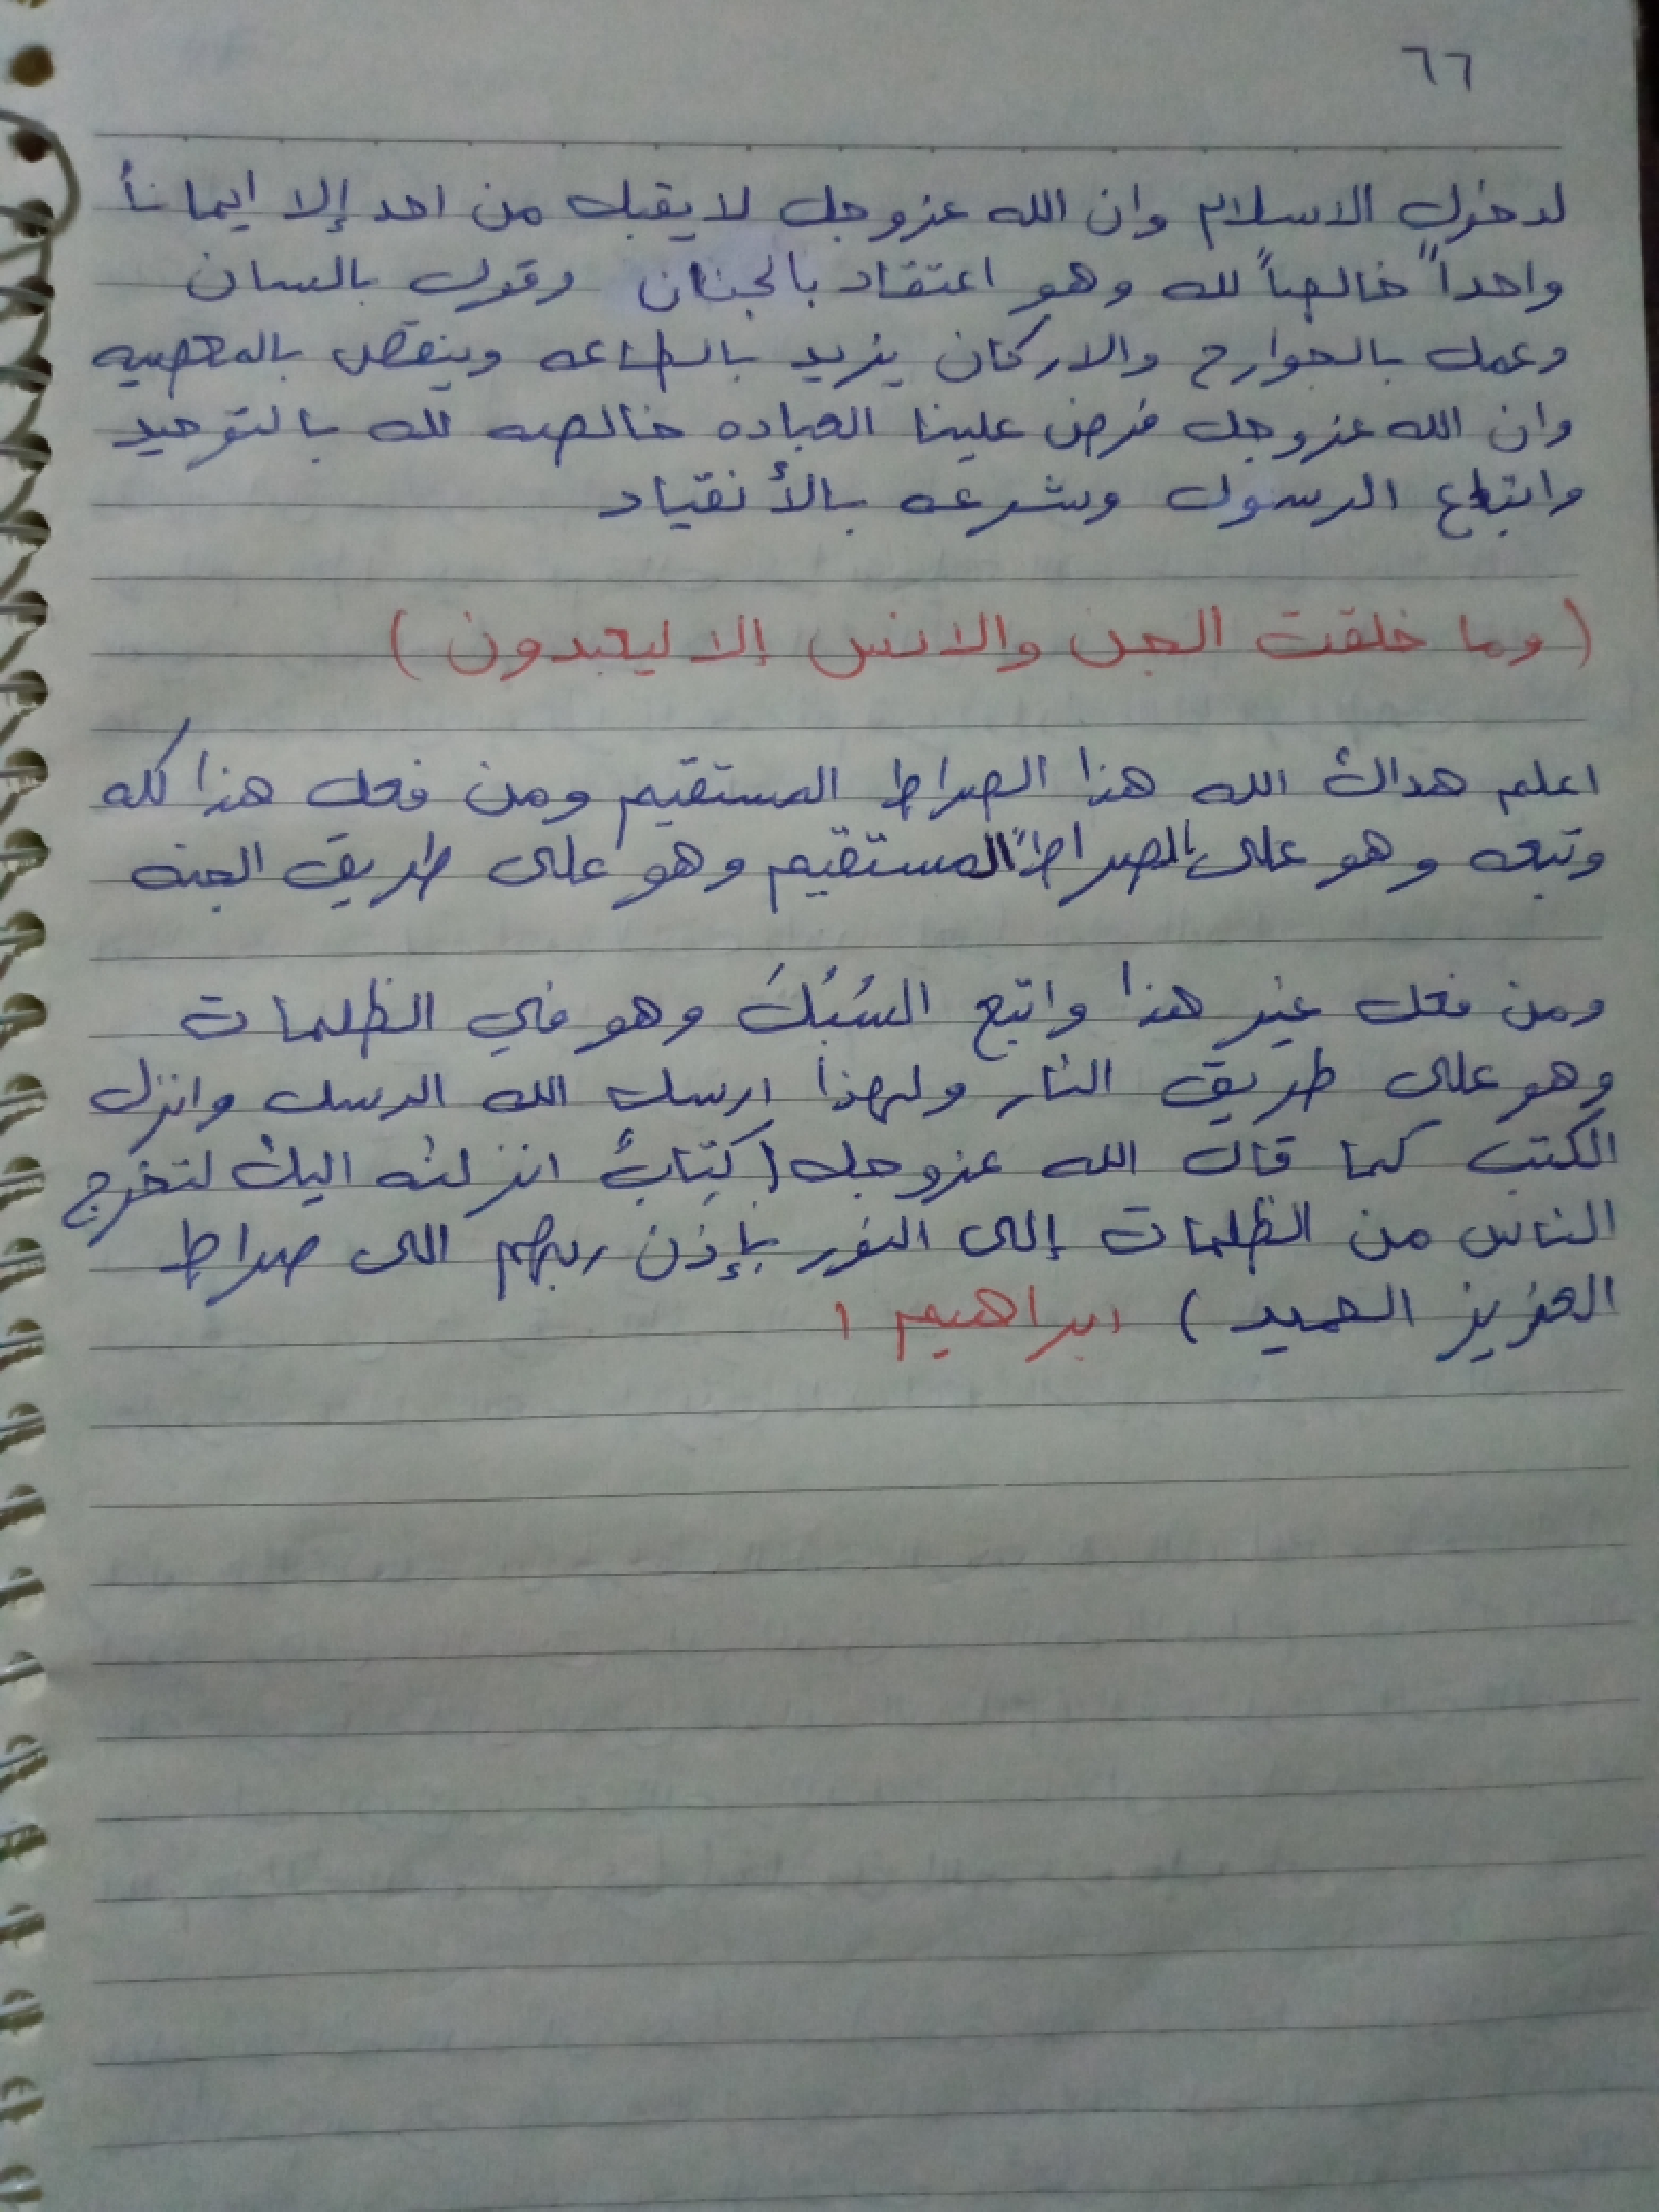 ٦٦
لدخول الاسلام وان الله عزوجل لا يقبل من احد إلا ايماناً
واحداً خالصاً لله وهو اعتقاد بالجنان وقول بالسان
وعمل بالجوارح والاركان يزيد بالطاعه وينقص بالمعصيه
وان الله عزوجل فرض علينا العباده خالصه لله بالتوحيد
واتباع الرسول وشرعه بالأنقياد
(وما خلقت الجن والانس إلا ليعبدون)
اعلم هداك الله هذا الصراط المستقيم ومن فعل هذا كله
وتبعه وهو على الصراط المستقيم وهو على طريق الجنه
ومن فعل غير هذا واتبع السُبُلَ وهو في الظلمات
وهو على طريق النار ولهذا ارسل الله الرسل وانزل
الكتب كما قال الله عزوجل (كِتابٌ انزلنه اليك لتخرج
الناس من الظلمات إلى النور بإذن ربهم الى صراط
العزيز الحميد) ابراهيم ١